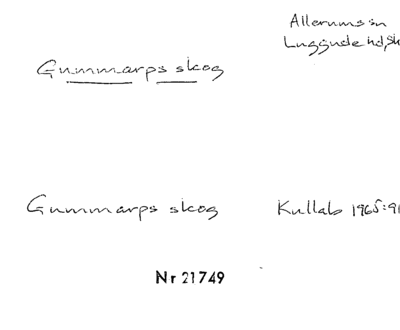 Allerums sn
Luggude hd, Sk
Gummarps skog
Gummarps skog
Kullab 1965:91
Nr 21749